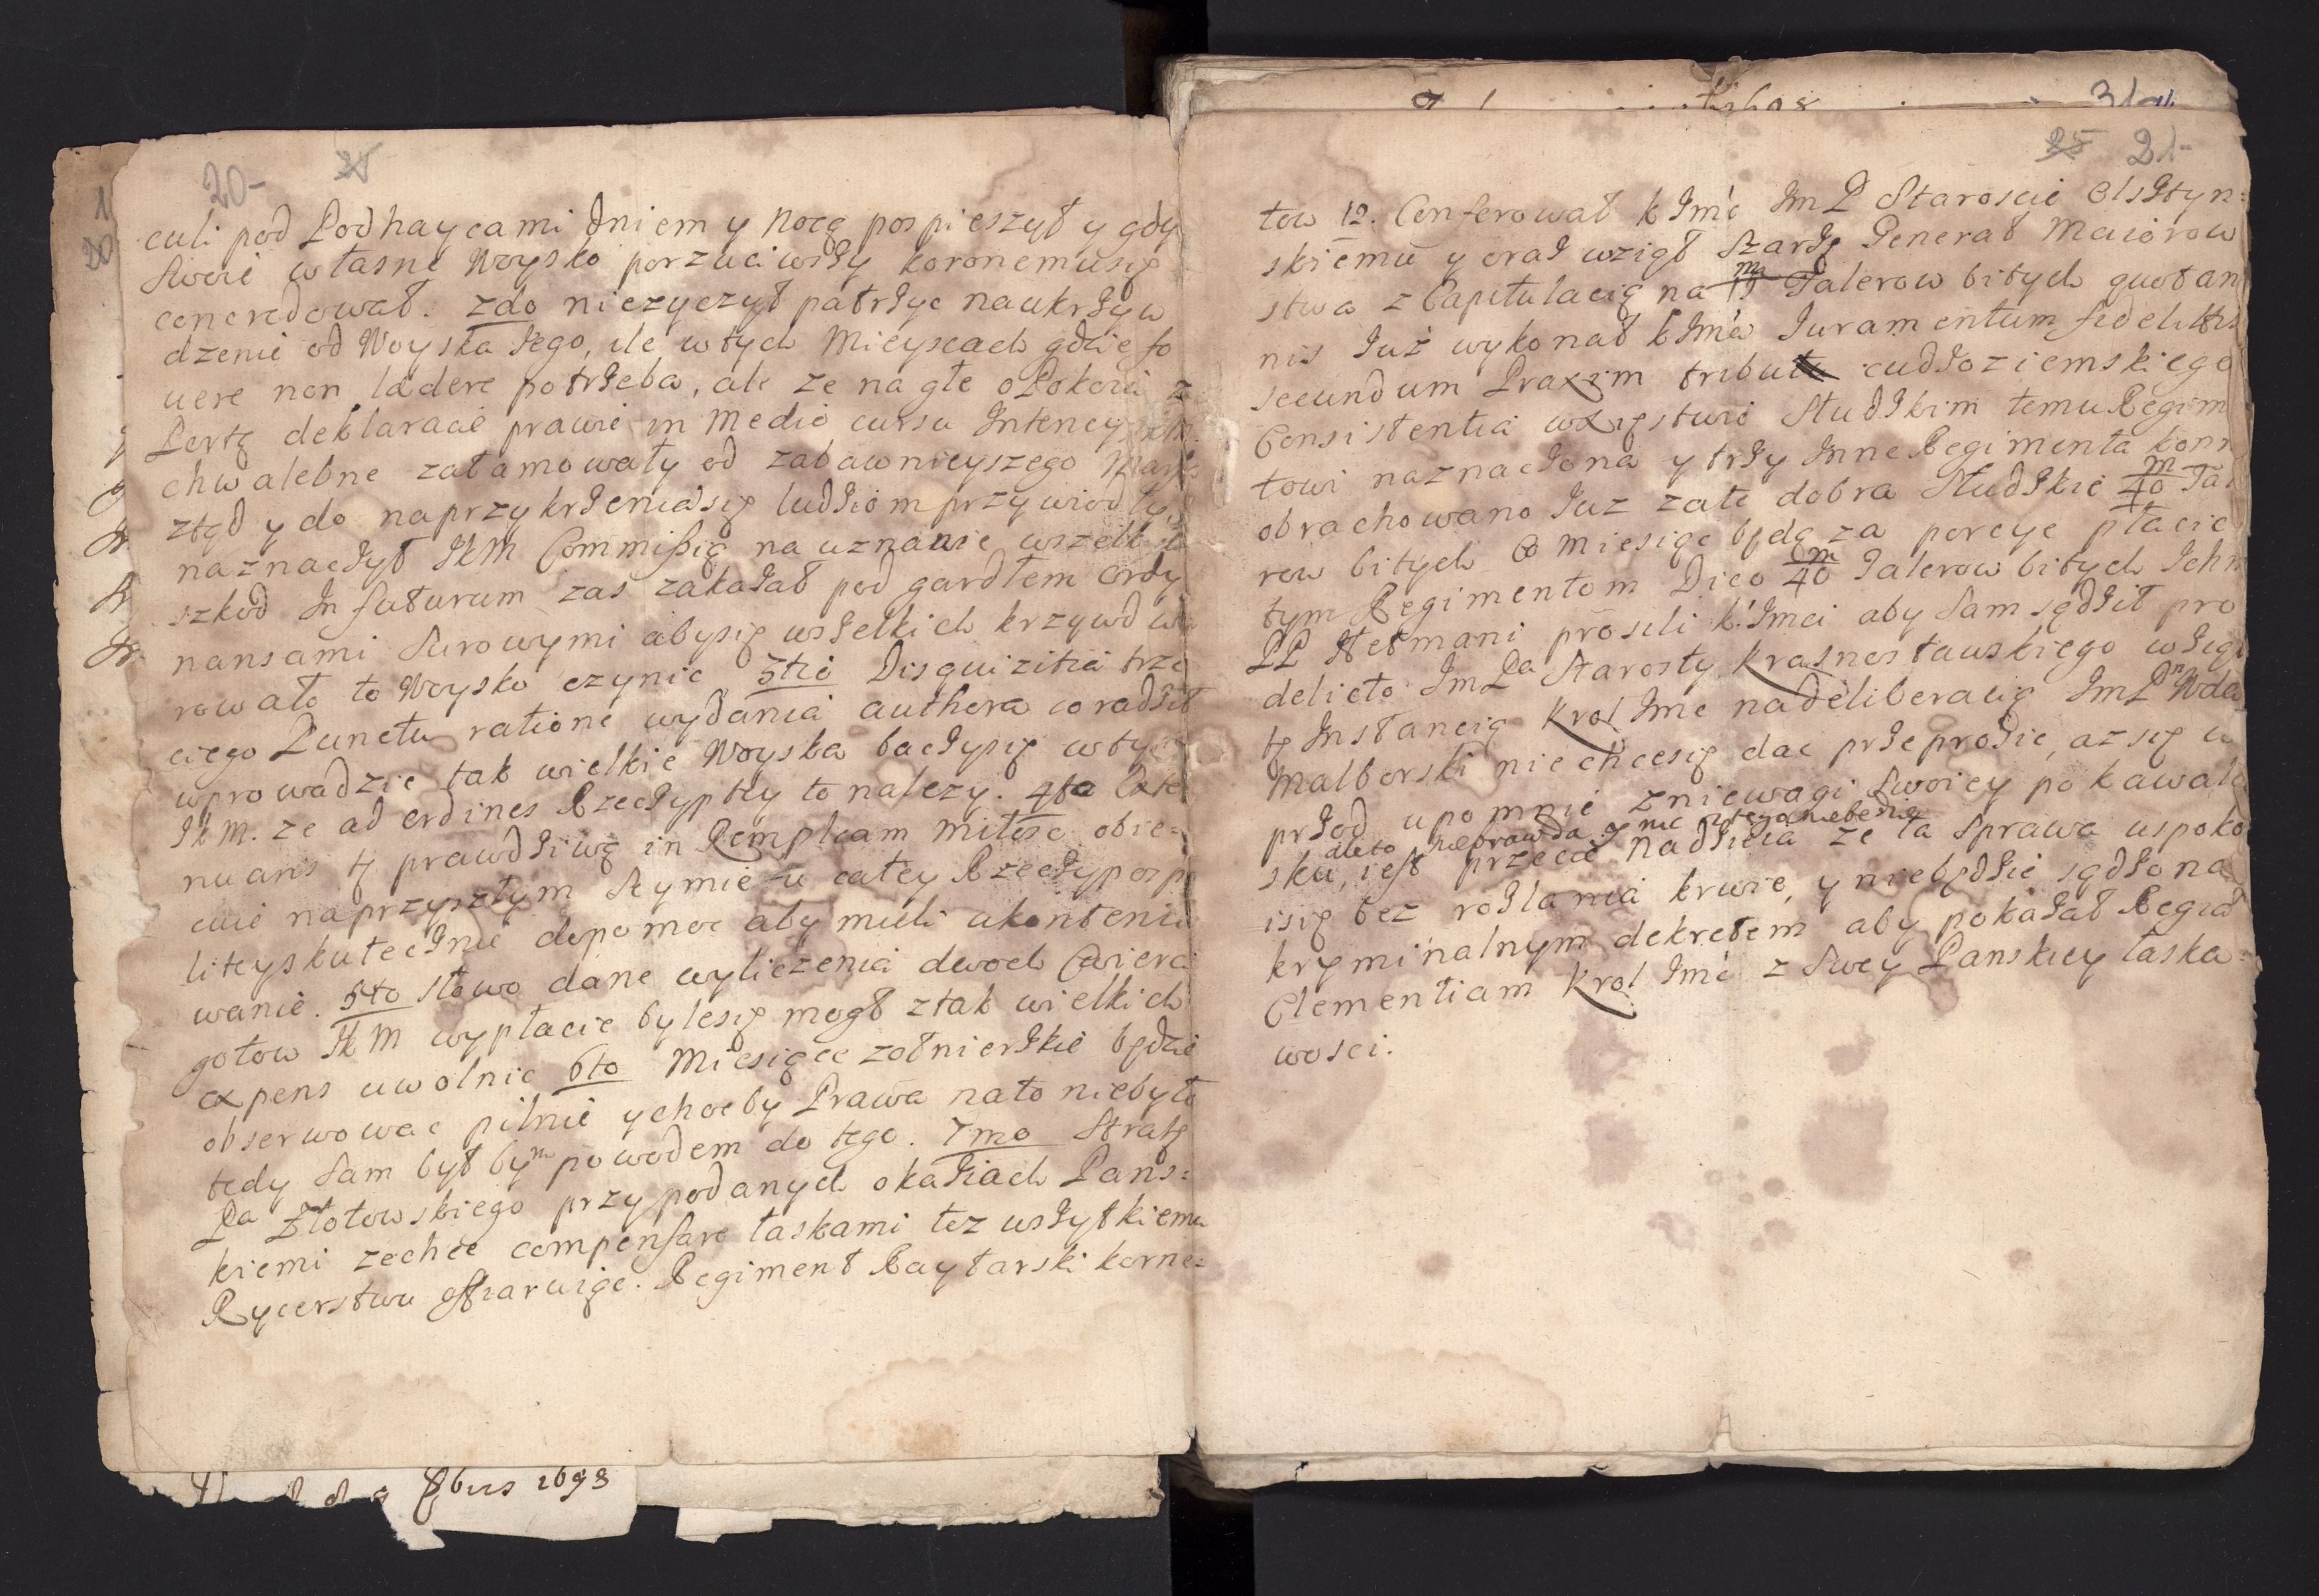 20-
culi pod Podhaycami Dniem y Nocą pospieszył y gdy
Swoie własne Woysko porzuciwszy koronemusię
concredował. 2do nieżyczył patrzyc naukrzyw
dzenie od Woyska tego, ile wtych Mieyscach gdzie fo
uere non ladere potrzeba, ale ze nagłe oPokoiu z
Portą deklaracie prawie in Medio cursu Intency JKM.
chwalebne załamowały od zabawnieyszego
ztąd y do naprzykrzeniasię ludziom przywiodły
naznaczył JKM Commissią na uznanie wszelkich
szkod In futurum zas zakazał pod gardłem ordy
nansami Surowymi abysię wszelkich krzywd wa
rowało to Woysko czynic 3tio Disquizitia trze
ciego Punctu ratione wydania authora coradził
wprowadzic tak wielkie Woyska baczysię wtym
JKM. ze ad ordines Rzeczyptey to nalezy. 4to Exte
nuans tę prawdziwą in Rempłcam Miłosc obie=
cuie naprzyszłym Seymie u całey Rzeczypospo
liteyskutecznie dopomoc aby mieli ukontento
wanie. 5to Słowo dane wyliczenia dwoch Cwierci
gotow JKM wypłacic bylesię mogł ztak wielkich
expens uwolnic 6to Miesiące zołnierskie będzie
obserwowac pilnie ychocby Prawa nato niebyło
tedy Sam był bym powodem do tego. 7mo Stratę
Pa Złotowskiego przy podanych okaziach Pans=
kiemi zechce compensare łaskami tez wszytkiemu
Rycerstwu offiaruiąc. Regiment Raytarski korne=
8bris 1693
31
25 21-
tow 12. Conferował k Jmc JmP Staroscie Olsztyn=
skiemu y oraz wziął Szarżę Generał Maiorow
stwa z Capitulacią na Talerow bitych quotan
nis Juz wykonał k Jmci Juramentum fidelitis
secundum Praxim cudzoziemskiego
Consistentia wXięstwie Słudzkim temu Regim
towi naznaczona y trzy Inne Regimenta kon
obrachowano Juz zate dobra Słudzkie 40 m Tal
row bitych Co Miesiąc będą za porcye płacic
tym Regimentom Dico 40 m Talerow bitych Jchm
PP Hetmani prosili k. Jmci aby Sam sądził pro
delicto JmPa Starosty Krasnostawskiego wzią
tę Instancią Krol Jmc nadeliberacią JmPn Wda
Malborski niechcesię dac przeprosic, az się w
przod upomnie zniewagi Swoiey po kawale
ale to nieprawda y nic ztego niebędzie
sku, iest przecie nadzieia ze ta Sprawa uspoko
isię bez rozlania krwie, y niebędzie sądzona
kryminalnym dekretem aby pokazał Regia
Clementiam Krol Jmc z Swey Panskiey łaska=
wosci.